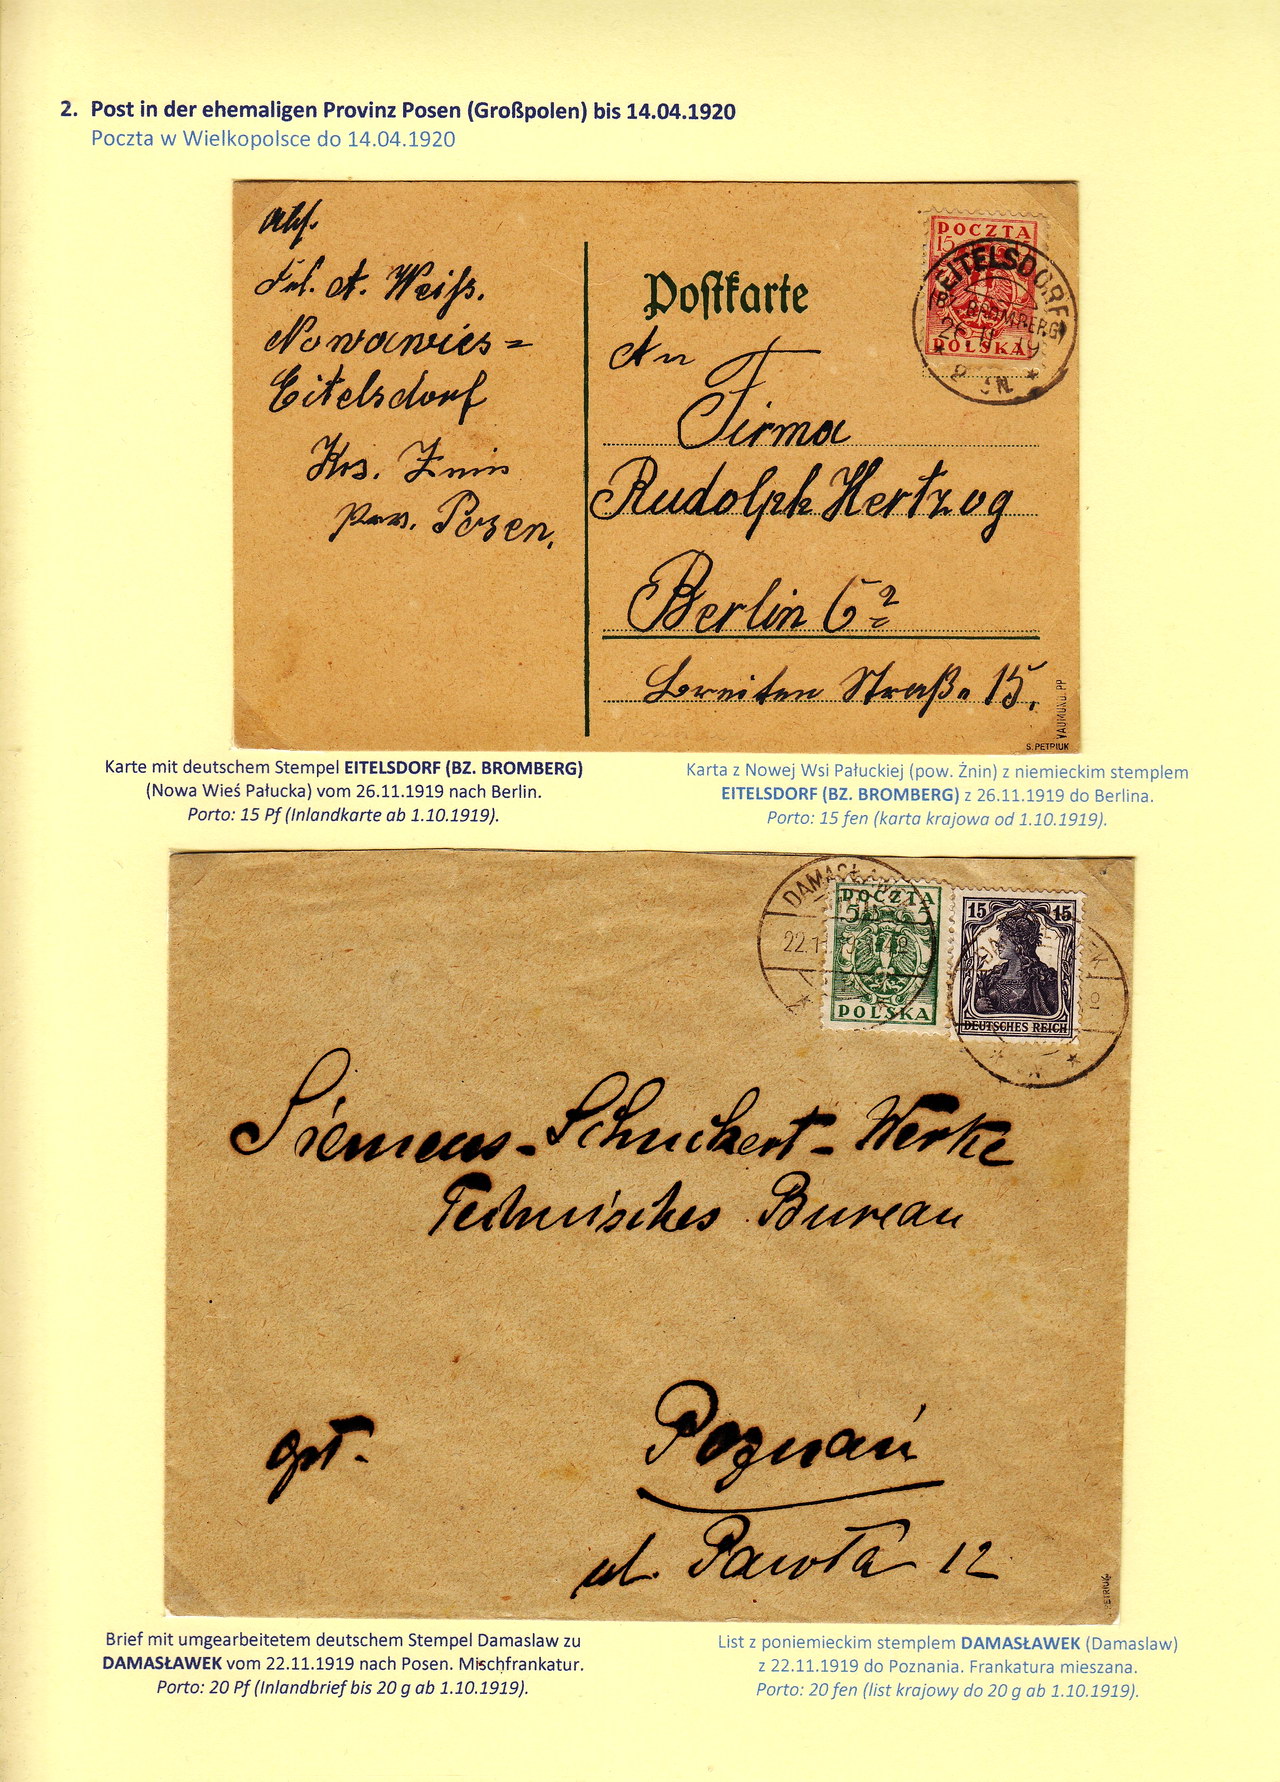 2. Post in der ehemaligen Provinz Posen (Großpolen) bis 14.04.1920
Poczta w Wielkopolsce do 14.04.1920
Abs.
Frl. A. Weiß.
Nowawies=
Eitelsdorf
Krs. Znin
Prov. Posen.
Postkarte
An
Firma
Rudolph Hertzog
Berlin C2
Breiten Straße 15.
POCZTA
15
POLSKA
EITELSDORF
(BZ. BROMBERG)
26 11 19
8 - 9 N.
S. PETRIUK
Karte mit deutschem Stempel EITELSDORF (BZ. BROMBERG)
(Nowa Wieś Pałucka) vom 26.11.1919 nach Berlin.
Porto: 15 Pf (Inlandkarte ab 1.10.1919).
Karta z Nowej Wsi Pałuckiej (pow. Żnin) z niemieckim stemplem
EITELSDORF (BZ. BROMBERG) z 26.11.1919 do Berlina.
Porto: 15 fen (karta krajowa od 1.10.1919).
DAMASŁAWEK
22.11.19
POCZTA
5 5
POLSKA
15 15
DEUTSCHES REICH
Siemens-Schuckert-Werke
Technisches Bureau
Poznań
ul. Pawła 12
PETRIUK
Brief mit umgearbeitetem deutschem Stempel Damaslaw zu
DAMASŁAWEK vom 22.11.1919 nach Posen. Mischfrankatur.
Porto: 20 Pf (Inlandbrief bis 20 g ab 1.10.1919).
List z poniemieckim stemplem DAMASŁAWEK (Damaslaw)
z 22.11.1919 do Poznania. Frankatura mieszana.
Porto: 20 fen (list krajowy do 20 g ab 1.10.1919).